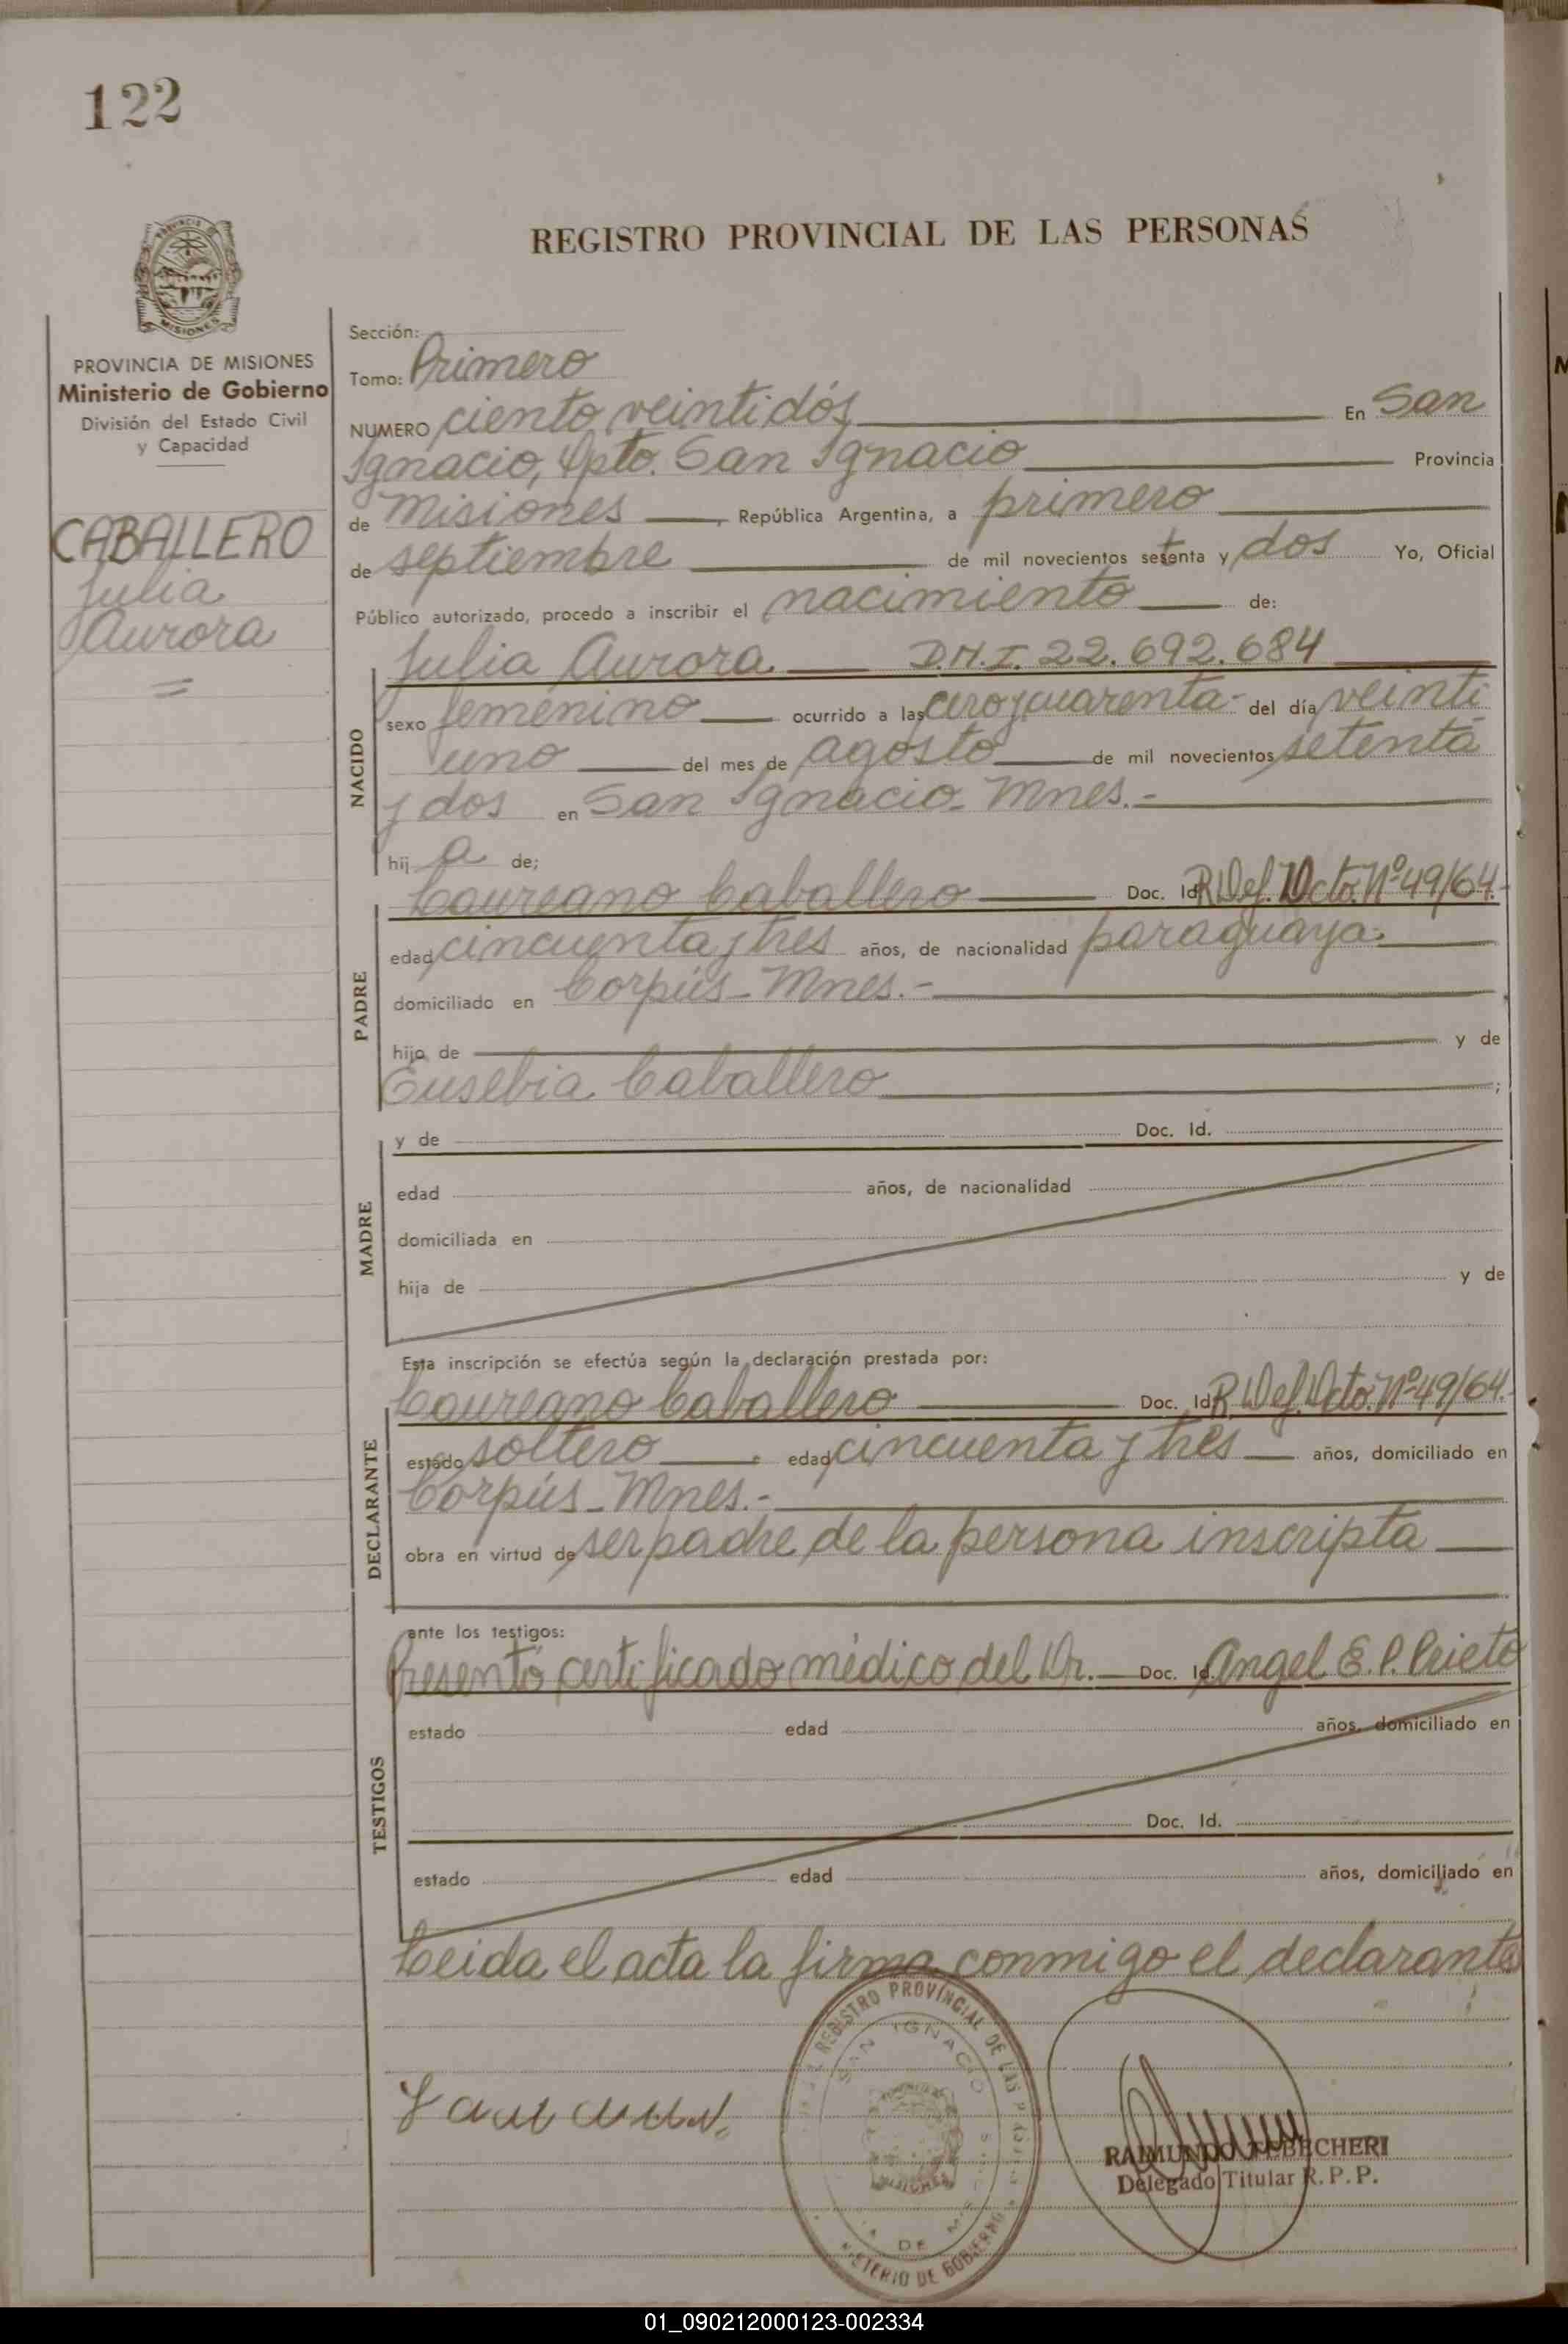 122
REGISTRO PROVINCIAL DE LAS PERSONAS
MISIONES
PROVINCIA DE MISIONES
Ministerio de Gobierno
División del Estado Civil
y Capacidad
CABALLERO
Julia
Aurora
Sección:
Tomo: Primero
NUMERO ciento veintidós En San
Ignacio, Dpto. San Ignacio Provincia
de Misiones, República Argentina, a primero
de septiembre de mil novecientos setenta y dos Yo, Oficial
Público autorizado, procedo a inscribir el nacimiento de:
Julia Aurora D.N.I. 22.692.684
NACIDO
sexo femenino ocurrido a las cero y cuarenta- del día veinti
uno del mes de agosto de mil novecientos setenta
y dos en San Ignacio- Mnes.-
hij a de;
Laureano Caballero Doc. Id. R. Def. Dcto. Nº 49/64.-
PADRE
edad cincuenta y tres años, de nacionalidad paraguaya.
domiciliado en Corpús- Mnes.-
hijo de y de
Eusebia Caballero ;
MADRE
y de Doc. Id.
edad años, de nacionalidad
domiciliada en
hija de y de
Esta inscripción se efectúa según la declaración prestada por:
Laureano Caballero Doc. Id. R. Def. Dcto. Nº 49/64.-
DECLARANTE
estado soltero edad cincuenta y tres años, domiciliado en
Corpús- Mnes.-
obra en virtud de ser padre de la persona inscripta
ante los testigos:
Presentó certificado médico del Dr. Doc. Id. Angel E. P. Prieto
TESTIGOS
estado edad años, domiciliado en
Doc. Id.
estado edad años, domiciliado en
Leida el acta la firma conmigo el declarante
REGISTRO PROVINCIAL DE LAS
SAN IGNACIO
MISIONES
DE
DE GOBIERNO
RAIMUNDO
Delegado Titular R.P.P.
01_090212000123-002334